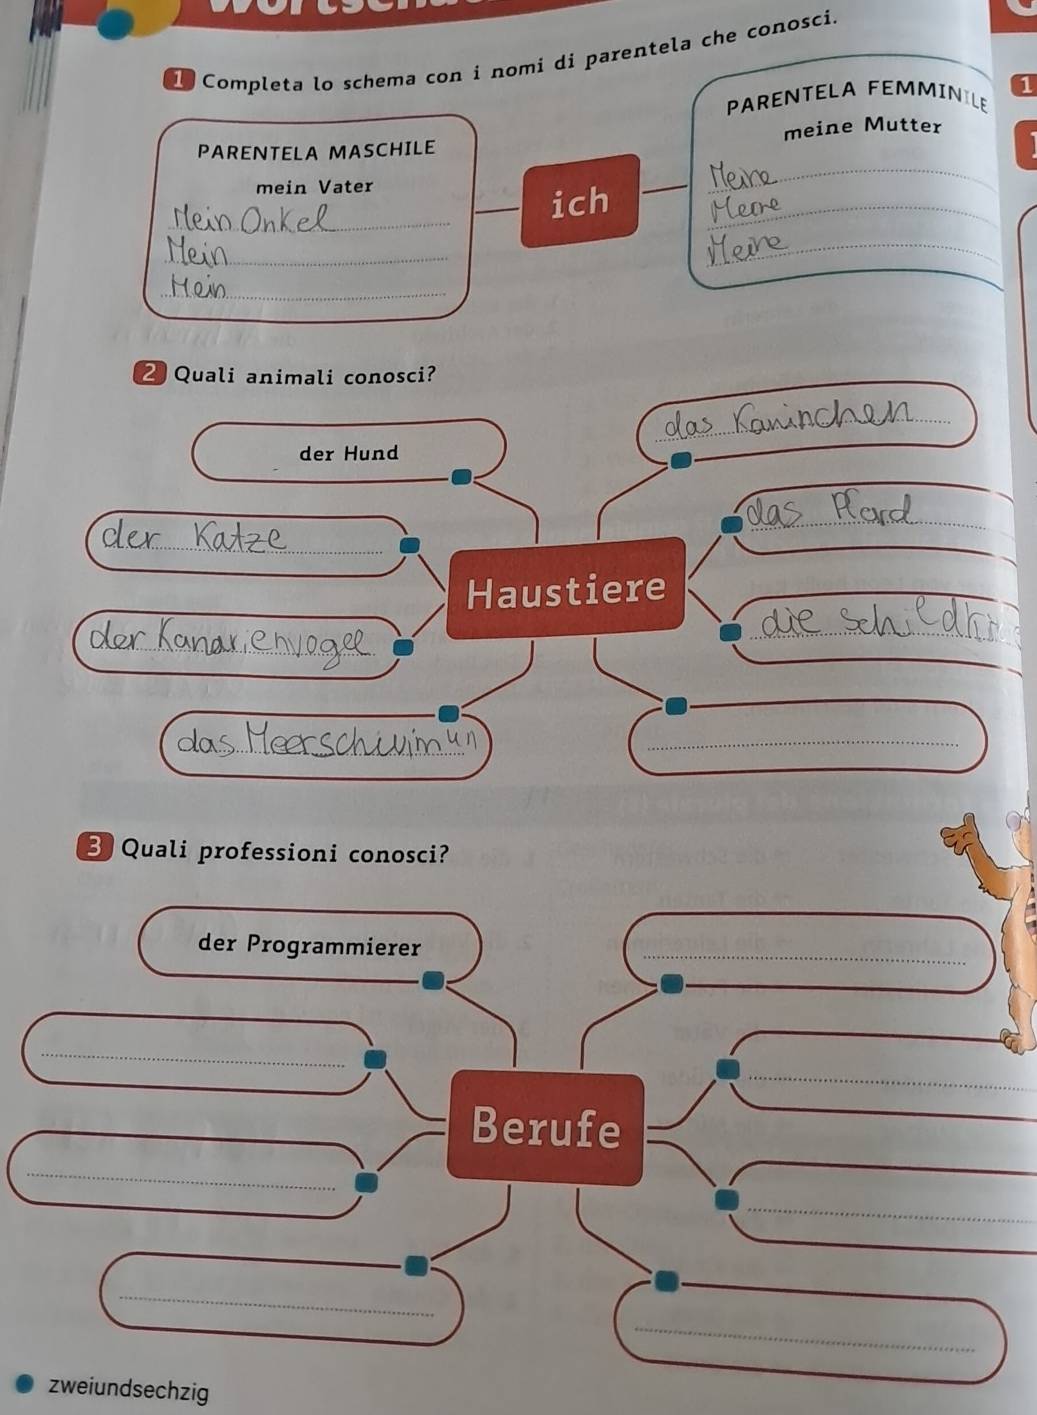 1 Completa lo schema con i nomi di parentela che conosci.
PARENTELA MASCHILE
mein Vater
Mein Onkel
Mein
Mein
ich
PARENTELA FEMMINILE
meine Mutter
Meine
Meine
Meine
1
2 Quali animali conosci?
der Hund
das Kaninchen
der Katze
das Pferd
Haustiere
der Kanarienvogel
die Schildkr
das Meerschwimun
3 Quali professioni conosci?
der Programmierer
Berufe
zweiundsechzig